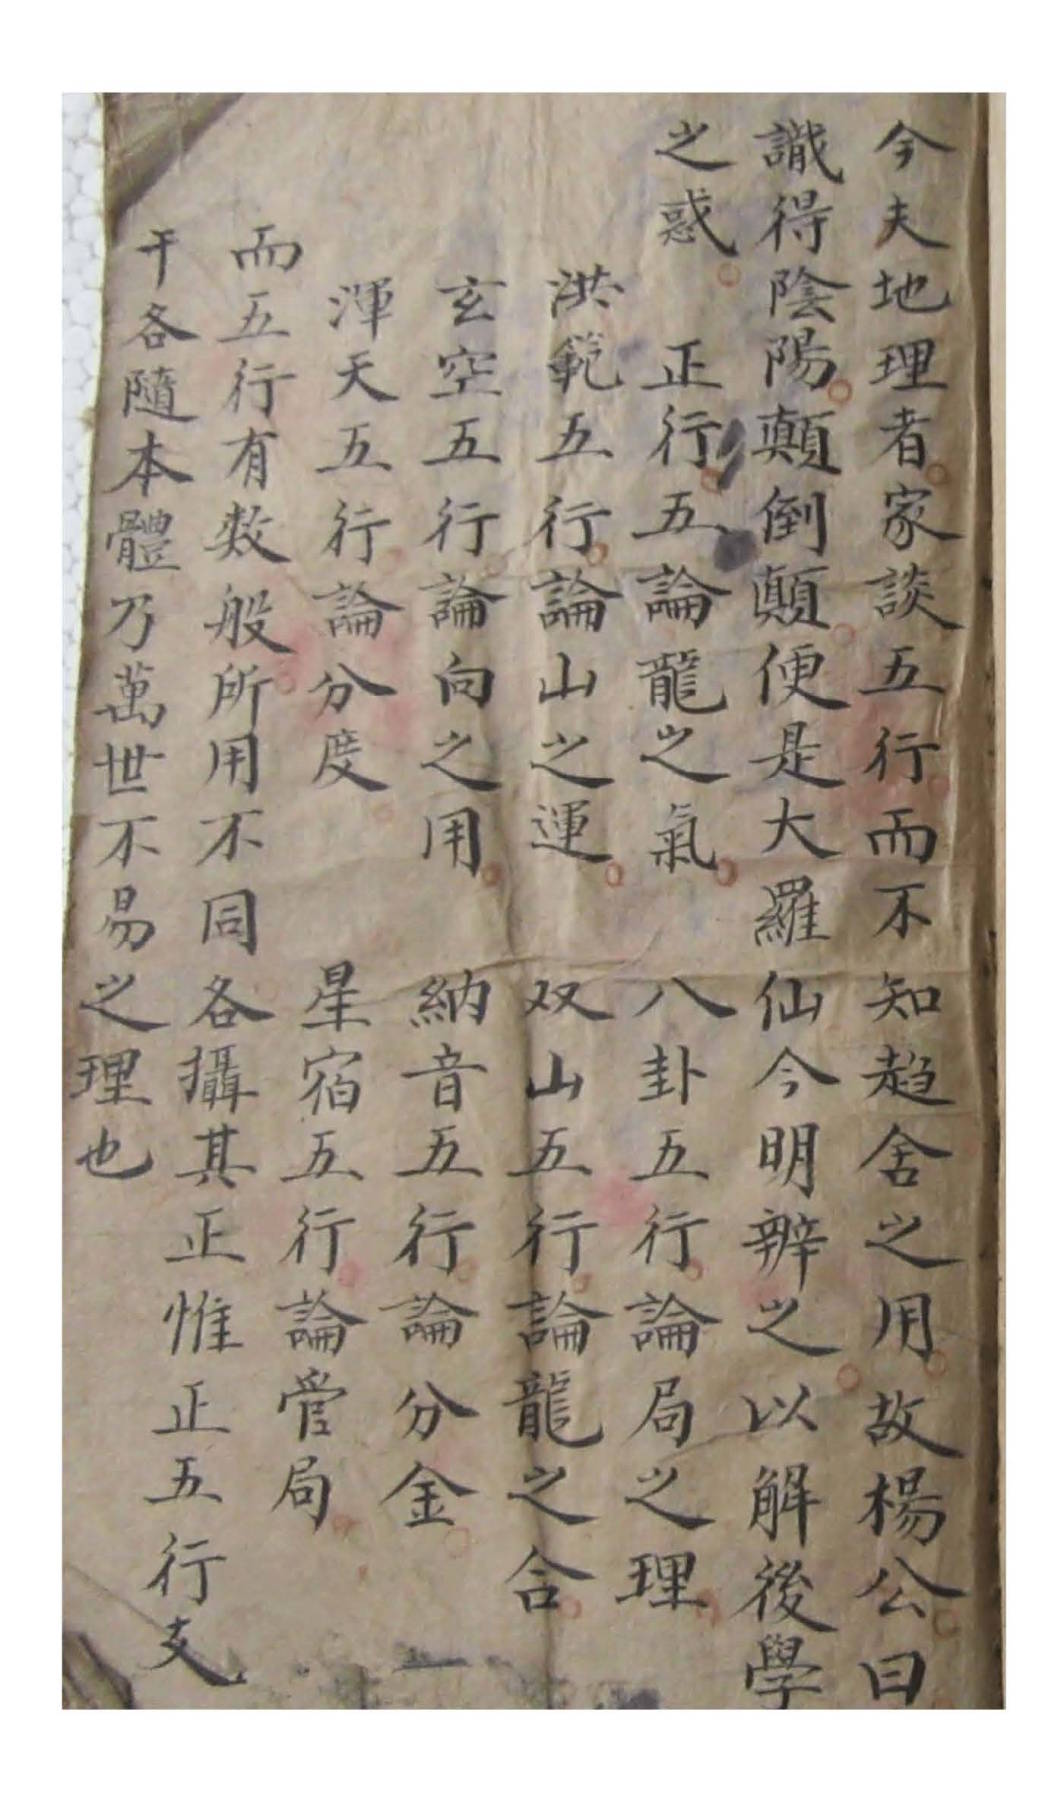 今夫地理者家談五行而不知趨舍之用故楊公曰
識得陰陽顛倒顛便是大羅仙今明辨之以解後學
之惑 正行五論龍之氣 八卦五行論局之理
洪範五行論山之運 双山五行論龍之合
玄空五行論向之用 納音五行論分金
渾天五行論分度 星宿五行論管局
而五行有数般所用不同各攝其正惟正五行支
干各隨本體乃萬世不易之理也